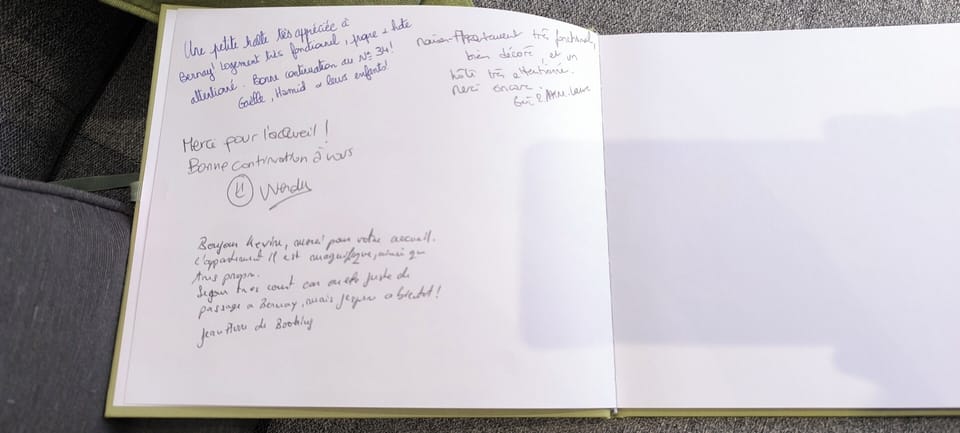 Une petite halte très appréciée à
Bernay! Logement très fonctionnel, propre + hôte
attentionné. Bonne continuation au N° 34!
Gaëlle, Hamid & leurs enfants!
Merci pour l'accueil !
Bonne continuation à vous
Bonjour Kevin, merci pour votre accueil.
L'appartement il est magnifique, ainsi que
très propre.
Séjour très court car on est juste de
passage a Bernay, mais j'espère a bientôt!
Jean Pierre de Booking
Maison-Appartement très fonctionnel,
bien décoré, et un
hôte très attentionné.
Merci encore.